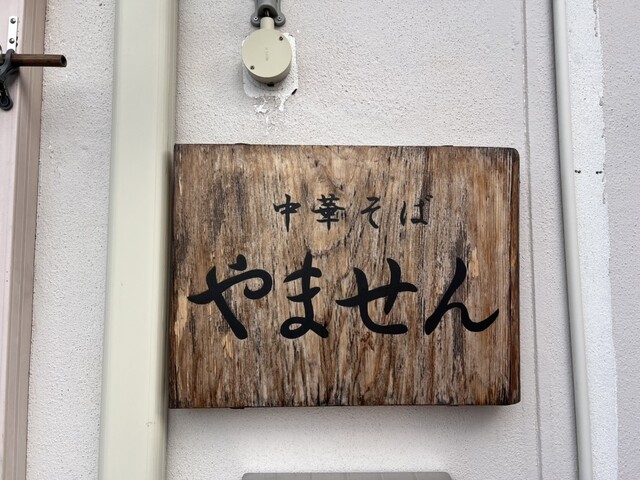 中華そば
やません